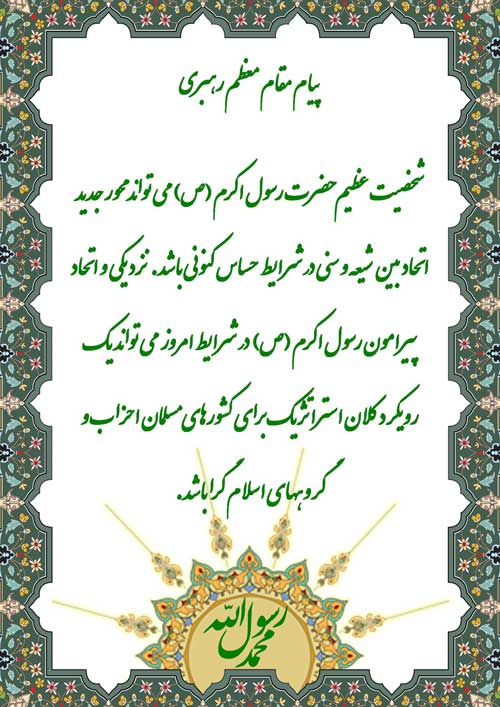 پیام مقام معظم رهبری
شخصیت عظیم حضرت رسول اکرم (ص) می تواند محور جدید
اتحاد بین شیعه و سنی در شرایط حساس کنونی باشد. نزدیکی و اتحاد
پیرامون رسول اکرم (ص) در شرایط امروز می تواند یک
رویکرد کلان استراتژیک برای کشورهای مسلمان احزاب و
گروههای اسلام گرا باشد.
محمد رسول الله